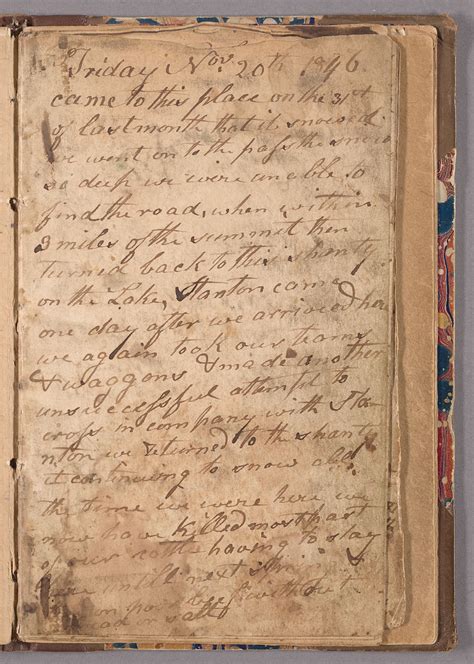 Friday Nov. 20th 1846
came to this place on the 31st
of last month that it snowed
we went on to the pass the snow
so deep we were unable to
find the road, when within
3 miles of the summit then
turned back to this shanty
on the Lake, Stanton came
one day after we arrived here
we again took our teams
& waggons & made another
unsuccessful attempt to
cross in company with Sta
nton we returned to the shanty
it continueing to snow all
the time we were here we
now have killed most part
of our cattle having to stay
here until next
without
salt